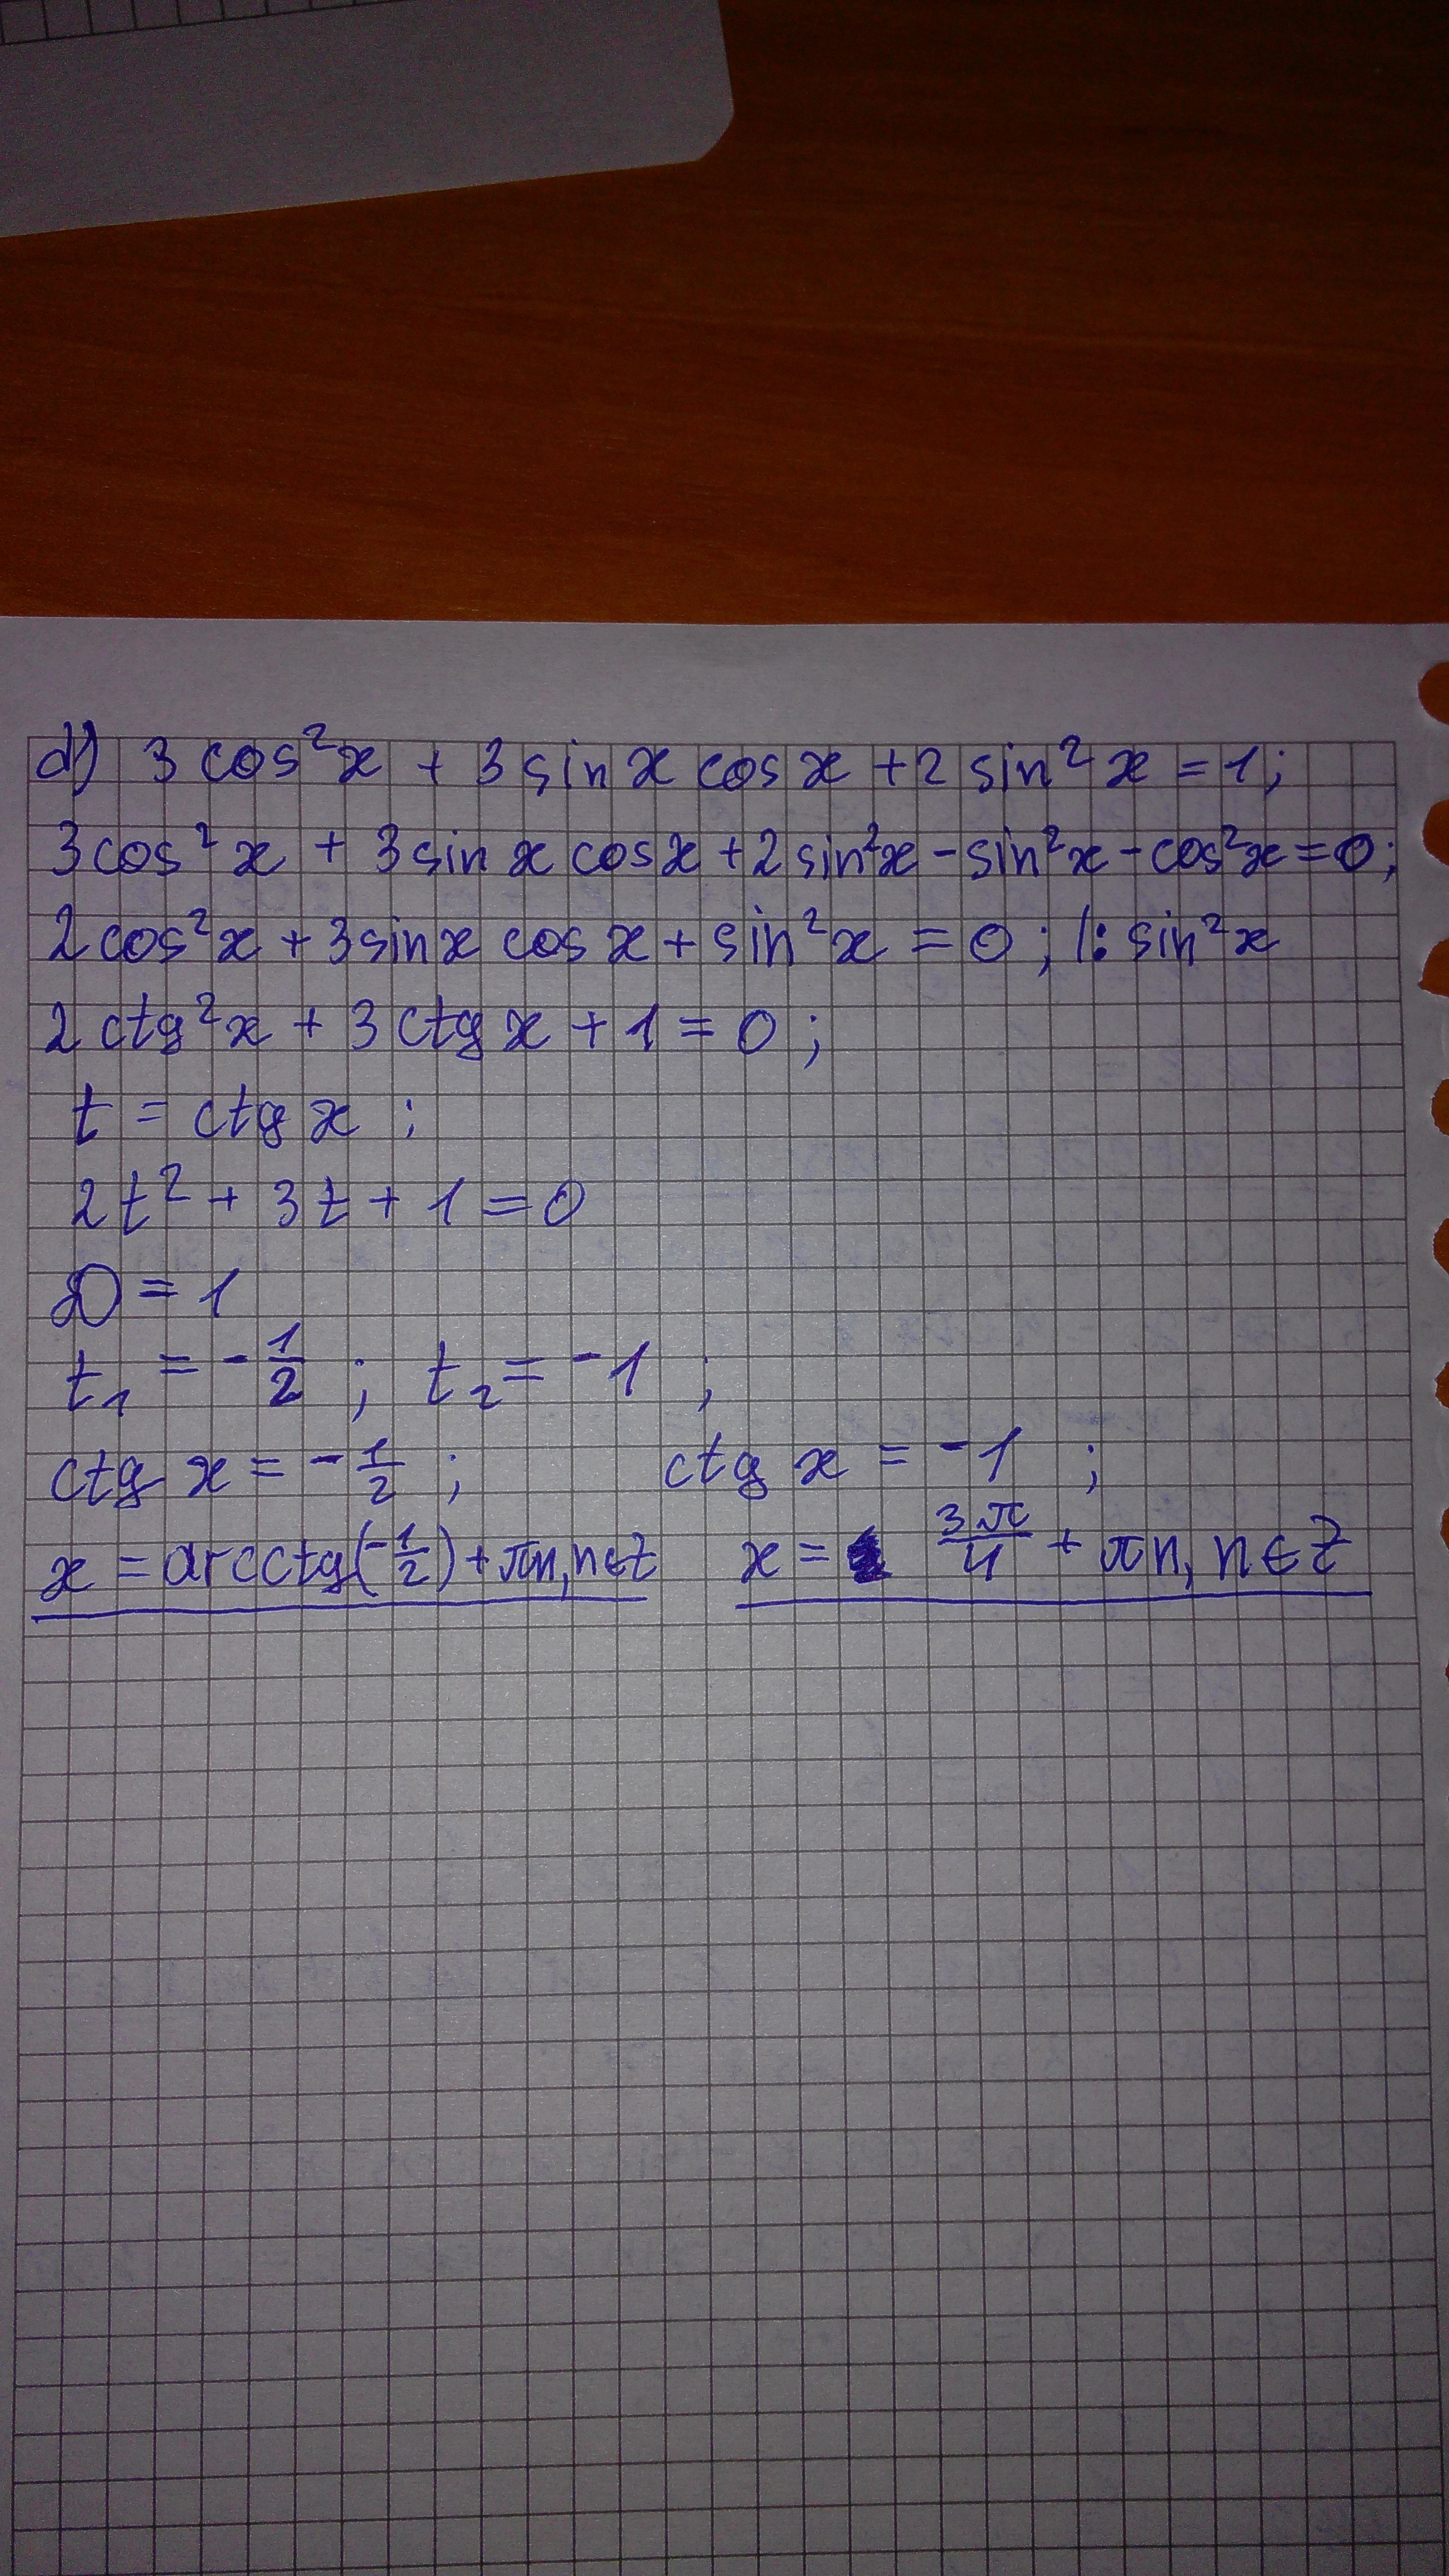 d) 3 cos²x + 3 sin x cos x + 2 sin²x = 1;
3cos²x + 3sin x cosx + 2 sin²x - sin²x - cos²x = 0;
2cos²x + 3sinx cos x + sin²x = 0; |: sin²x
2 ctg²x + 3 ctg x + 1 = 0;
t = ctg x ;
2t² + 3t + 1 = 0
D = 1
t₁ = -1/2 ; t₂ = -1 ;
ctg x = -1/2 ; ctg x = -1 ;
x = arcctg(-1/2) + πn, n∈Z x = 3π/4 + πn, n∈Z